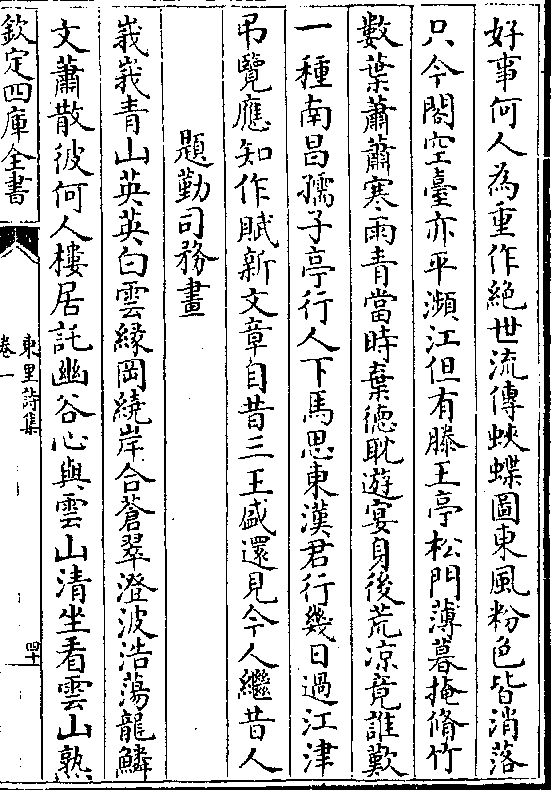 好事何人為重作絕世流傳蛺蝶圖東風粉色皆消落
只今閣空臺亦平瀕江但有滕王亭松門薄暮掩脩竹
數葉蕭蕭寒雨青當時棄德耽遊宴身後荒凉竟誰歎
一種南昌孺子亭行人下馬思東漢君行幾日過江津
弔覽應知作賦新文章自昔三王盛還見今人繼昔人
題勤司務畫
峩峩青山英英白雲緣岡繞岸合蒼翠澄波浩蕩龍鱗
文蕭散彼何人樓居託幽谷心與雲山清坐看雲山熟
欽定四庫全書
東里詩集
卷一
四十